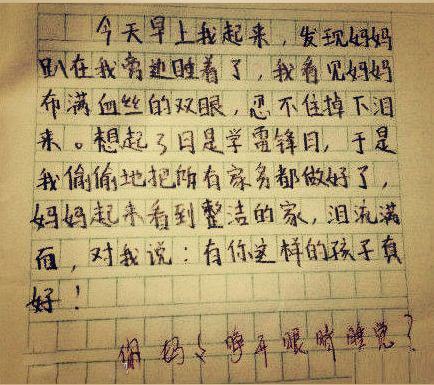 今天早上我起来，发现妈妈
趴在我旁边睡着了，我看见妈妈
布满血丝的双眼，忍不住掉下泪
来。想起了日是学雷锋日，于是
我偷偷地把所有家务都做好了，
妈妈起来看到整洁的家，泪流满
面，对我说：有你这样的孩子真
好！
你妈妈睁开眼睛睡觉？